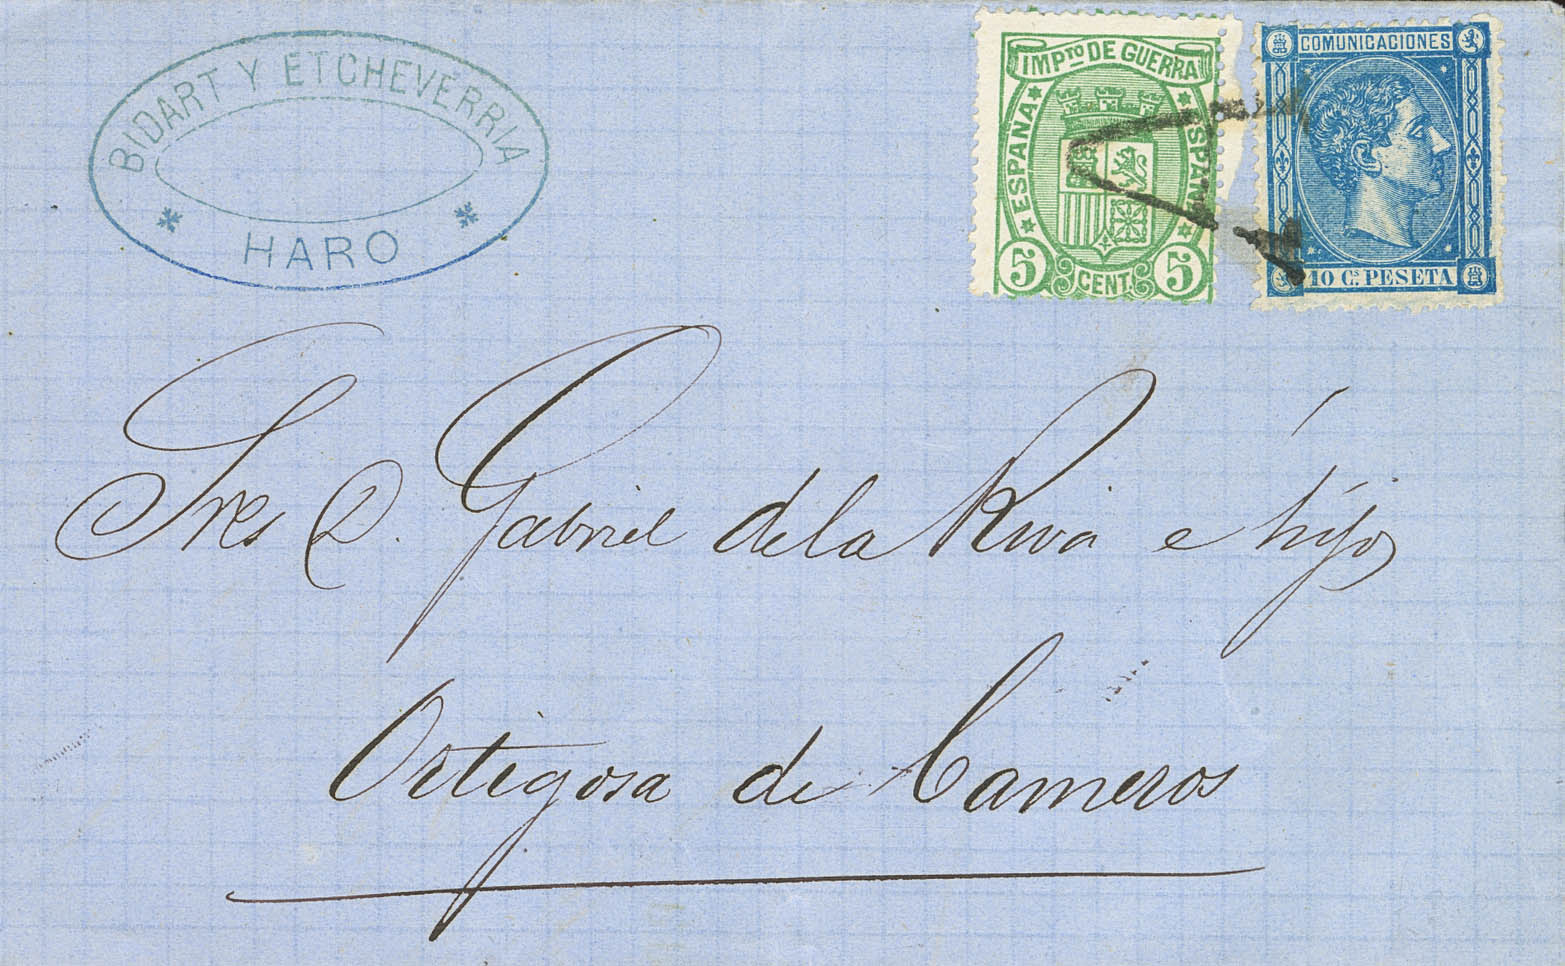 BIDART Y ETCHEVERRIA
HARO
IMPTO DE GUERRA
ESPAÑA
ESPAÑ
5 CENT. 5
COMUNICACIONES
10 Cs. PESETA
Sres D. Gabriel de la Riva e hijos
Ortigosa de Cameros